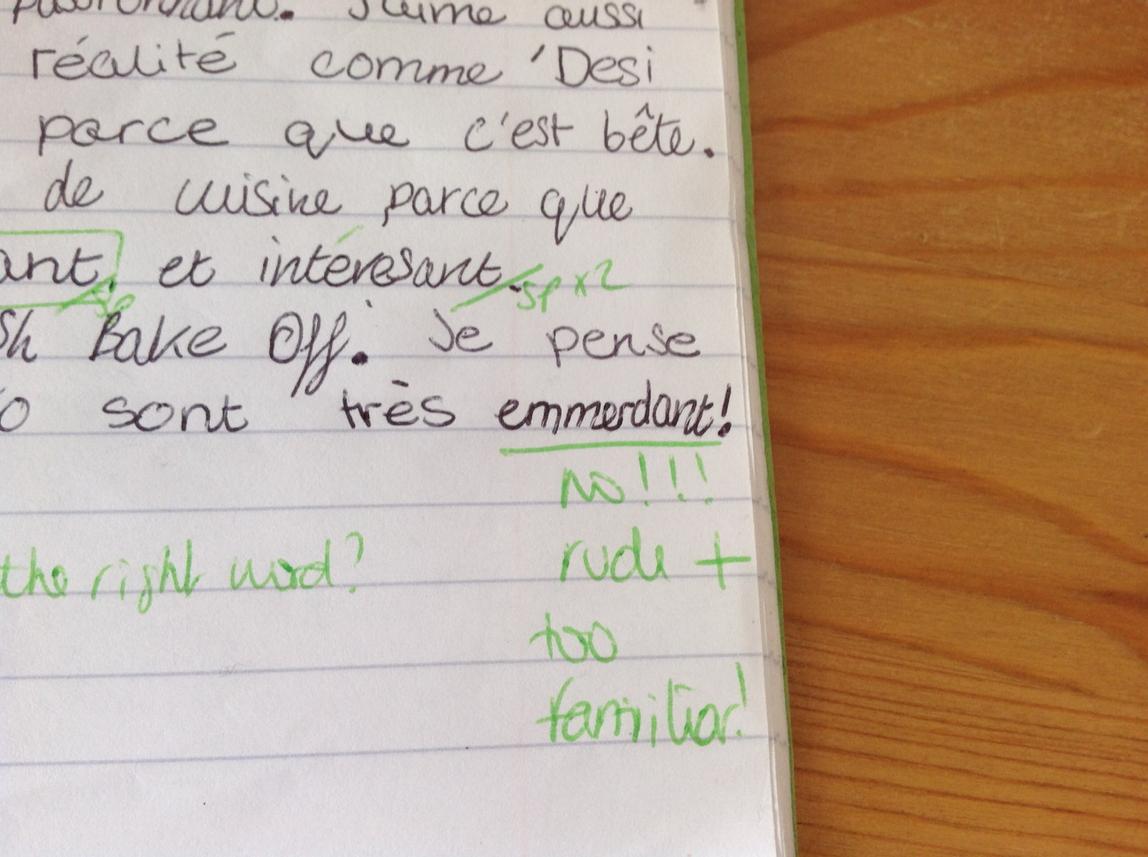 J'aime aussi
réalité comme 'Desi
parce que c'est bête.
de cuisine parce que
ant. et intéresant.
sp sp x2
sh Bake Off. Je pense
o sont très emmerdant!
no!!!
the right word? rude +
too
familiar!